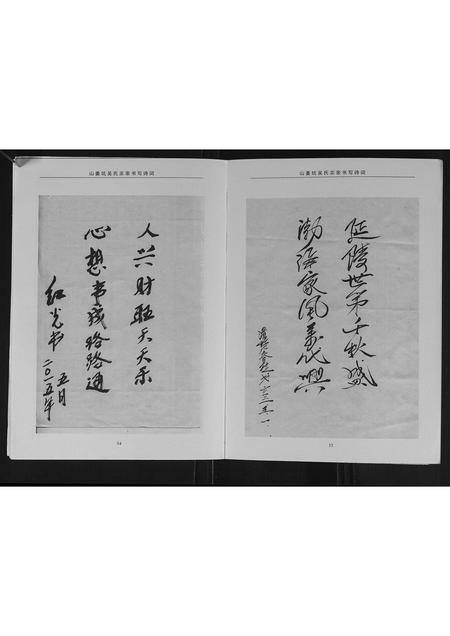 山姜坑吴氏宗亲书写诗词
人兴财旺天天乐
心想事成路路通
红光书
二〇一五年
五月
54
山姜坑吴氏宗亲书写诗词
延陵世第千秋盛
渤海家风万代兴